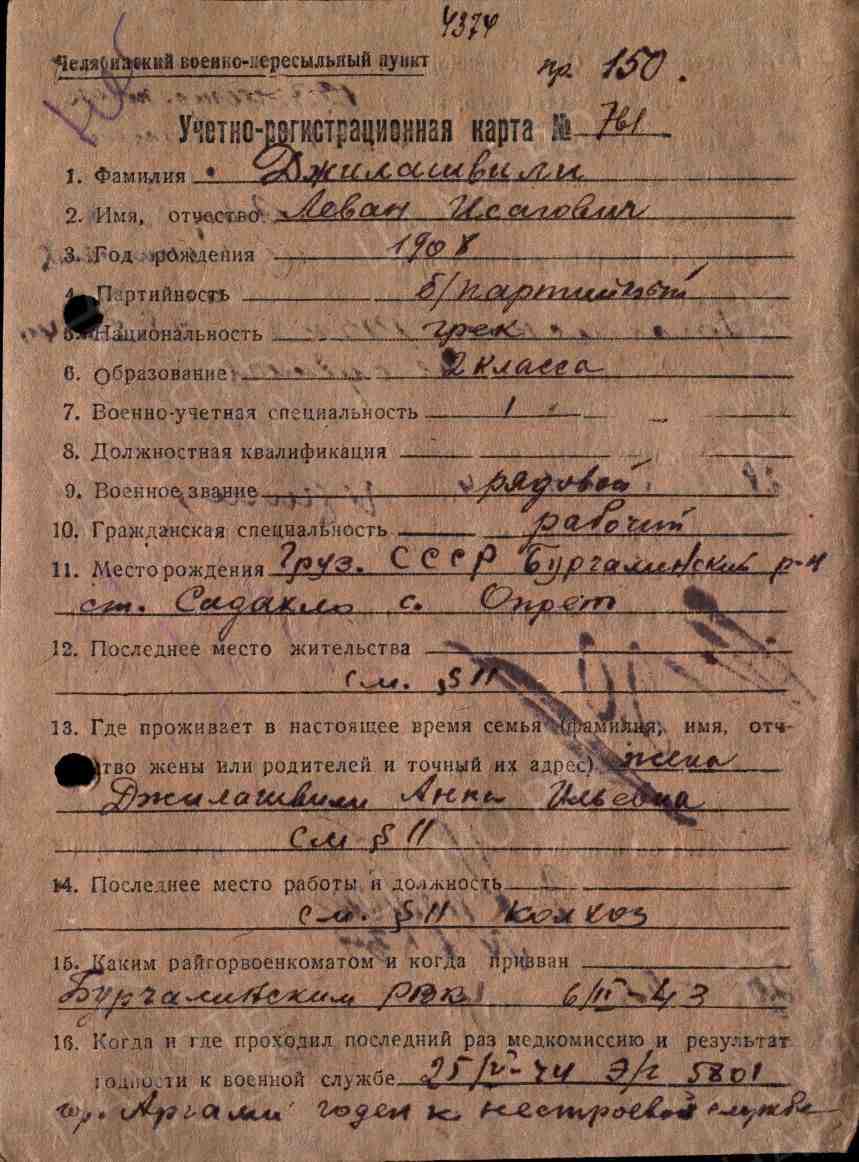 4374
Челябинский военно-пересыльный пункт
пр. 150.
Учетно-регистрационная карта № 761
1. Фамилия Джилашвили
2. Имя, отчество Леван Исагович
3. Год рождения 1908
4. Партийность б/партийный
5. Национальность грек
6. Образование 2 класса
7. Военно-учетная специальность 1
8. Должностная квалификация
9. Военное звание рядовой
10. Гражданская специальность рабочий
11. Место рождения Груз. СССР Бургалинский р-н
ст. Садакло с. Опрет
12. Последнее место жительства
см. § 11
13. Где проживает в настоящее время семья (фамилия, имя, отч-
тво жены или родителей и точный их адрес) жена
Джилашвили Анна Ильевна
см § 11
14. Последнее место работы и должность
см. § 11 колхоз
15. Каким райгорвоенкоматом и когда призван
Бурчалинским РВК 6/II-43
16. Когда и где проходил последний раз медкомиссию и результат
годности к военной службе 25/V-44 Э/г 5801
годен к нестроевой службе